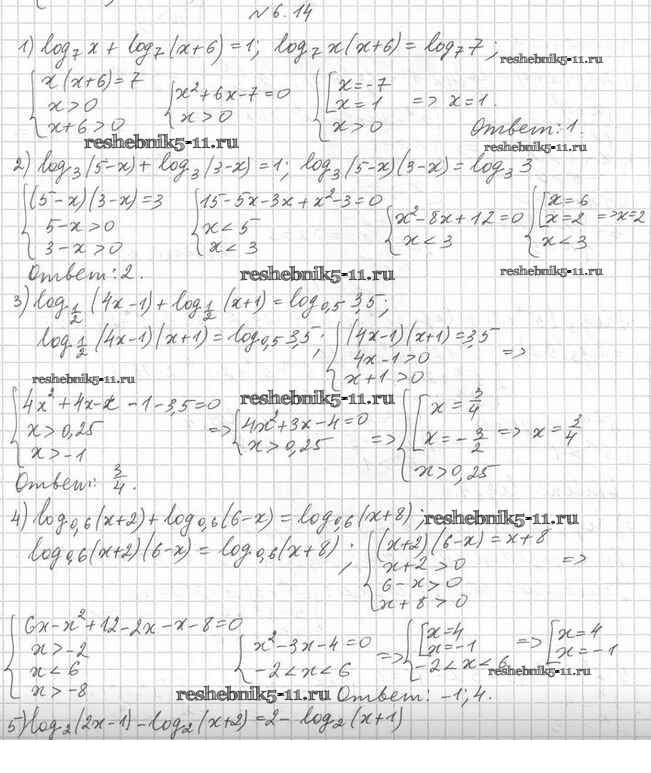 №6.14
1) log₇ x + log₇ (x+6) = 1; log₇ x(x+6) = log₇ 7;
reshebnik5-11.ru
{ x(x+6) = 7 { x²+6x-7=0 { [ x=-7
x>0 x>0 x=1 => x=1.
x+6>0 x>0 Ответ: 1.
reshebnik5-11.ru reshebnik5-11.ru
2) log₃ (5-x) + log₃ (3-x) = 1; log₃ (5-x)(3-x) = log₃ 3
{ (5-x)(3-x)=3 { 15-5x-3x+x²-3=0 { x²-8x+12=0 { [ x=6
5-x>0 x<5 x<3 x=2 => x=2
3-x>0 x<3 x<3
Ответ: 2. reshebnik5-11.ru reshebnik5-11.ru
3) log_{1/2} (4x-1) + log_{1/2} (x+1) = log_{0,5} 3,5;
log_{1/2} (4x-1)(x+1) = log_{0,5} 3,5; { (4x-1)(x+1)=3,5
4x-1>0 =>
x+1>0
reshebnik5-11.ru reshebnik5-11.ru
{ 4x²+4x-x-1-3,5=0 => { 4x²+3x-4=0 => { [ x=3/4
x>0,25 x>0,25 x=-3/2 => x=3/4
x>-1 x>0,25
Ответ: 3/4.
4) log_{0,6}(x+2) + log_{0,6}(6-x) = log_{0,6}(x+8); reshebnik5-11.ru
log_{0,6}(x+2)(6-x) = log_{0,6}(x+8); { (x+2)(6-x)=x+8
x+2>0 =>
6-x>0
x+8>0
{ 6x-x²+12-2x-x-8=0 { x²-3x-4=0 => { [ x=4 => [ x=4
x>-2 -2<x<6 x=-1 x=-1
x<6 -2<x<6 reshebnik5-11.ru
x>-8 reshebnik5-11.ru Ответ: -1; 4.
5) log₂(2x-1) - log₂(x+2) = 2 - log₂(x+1)